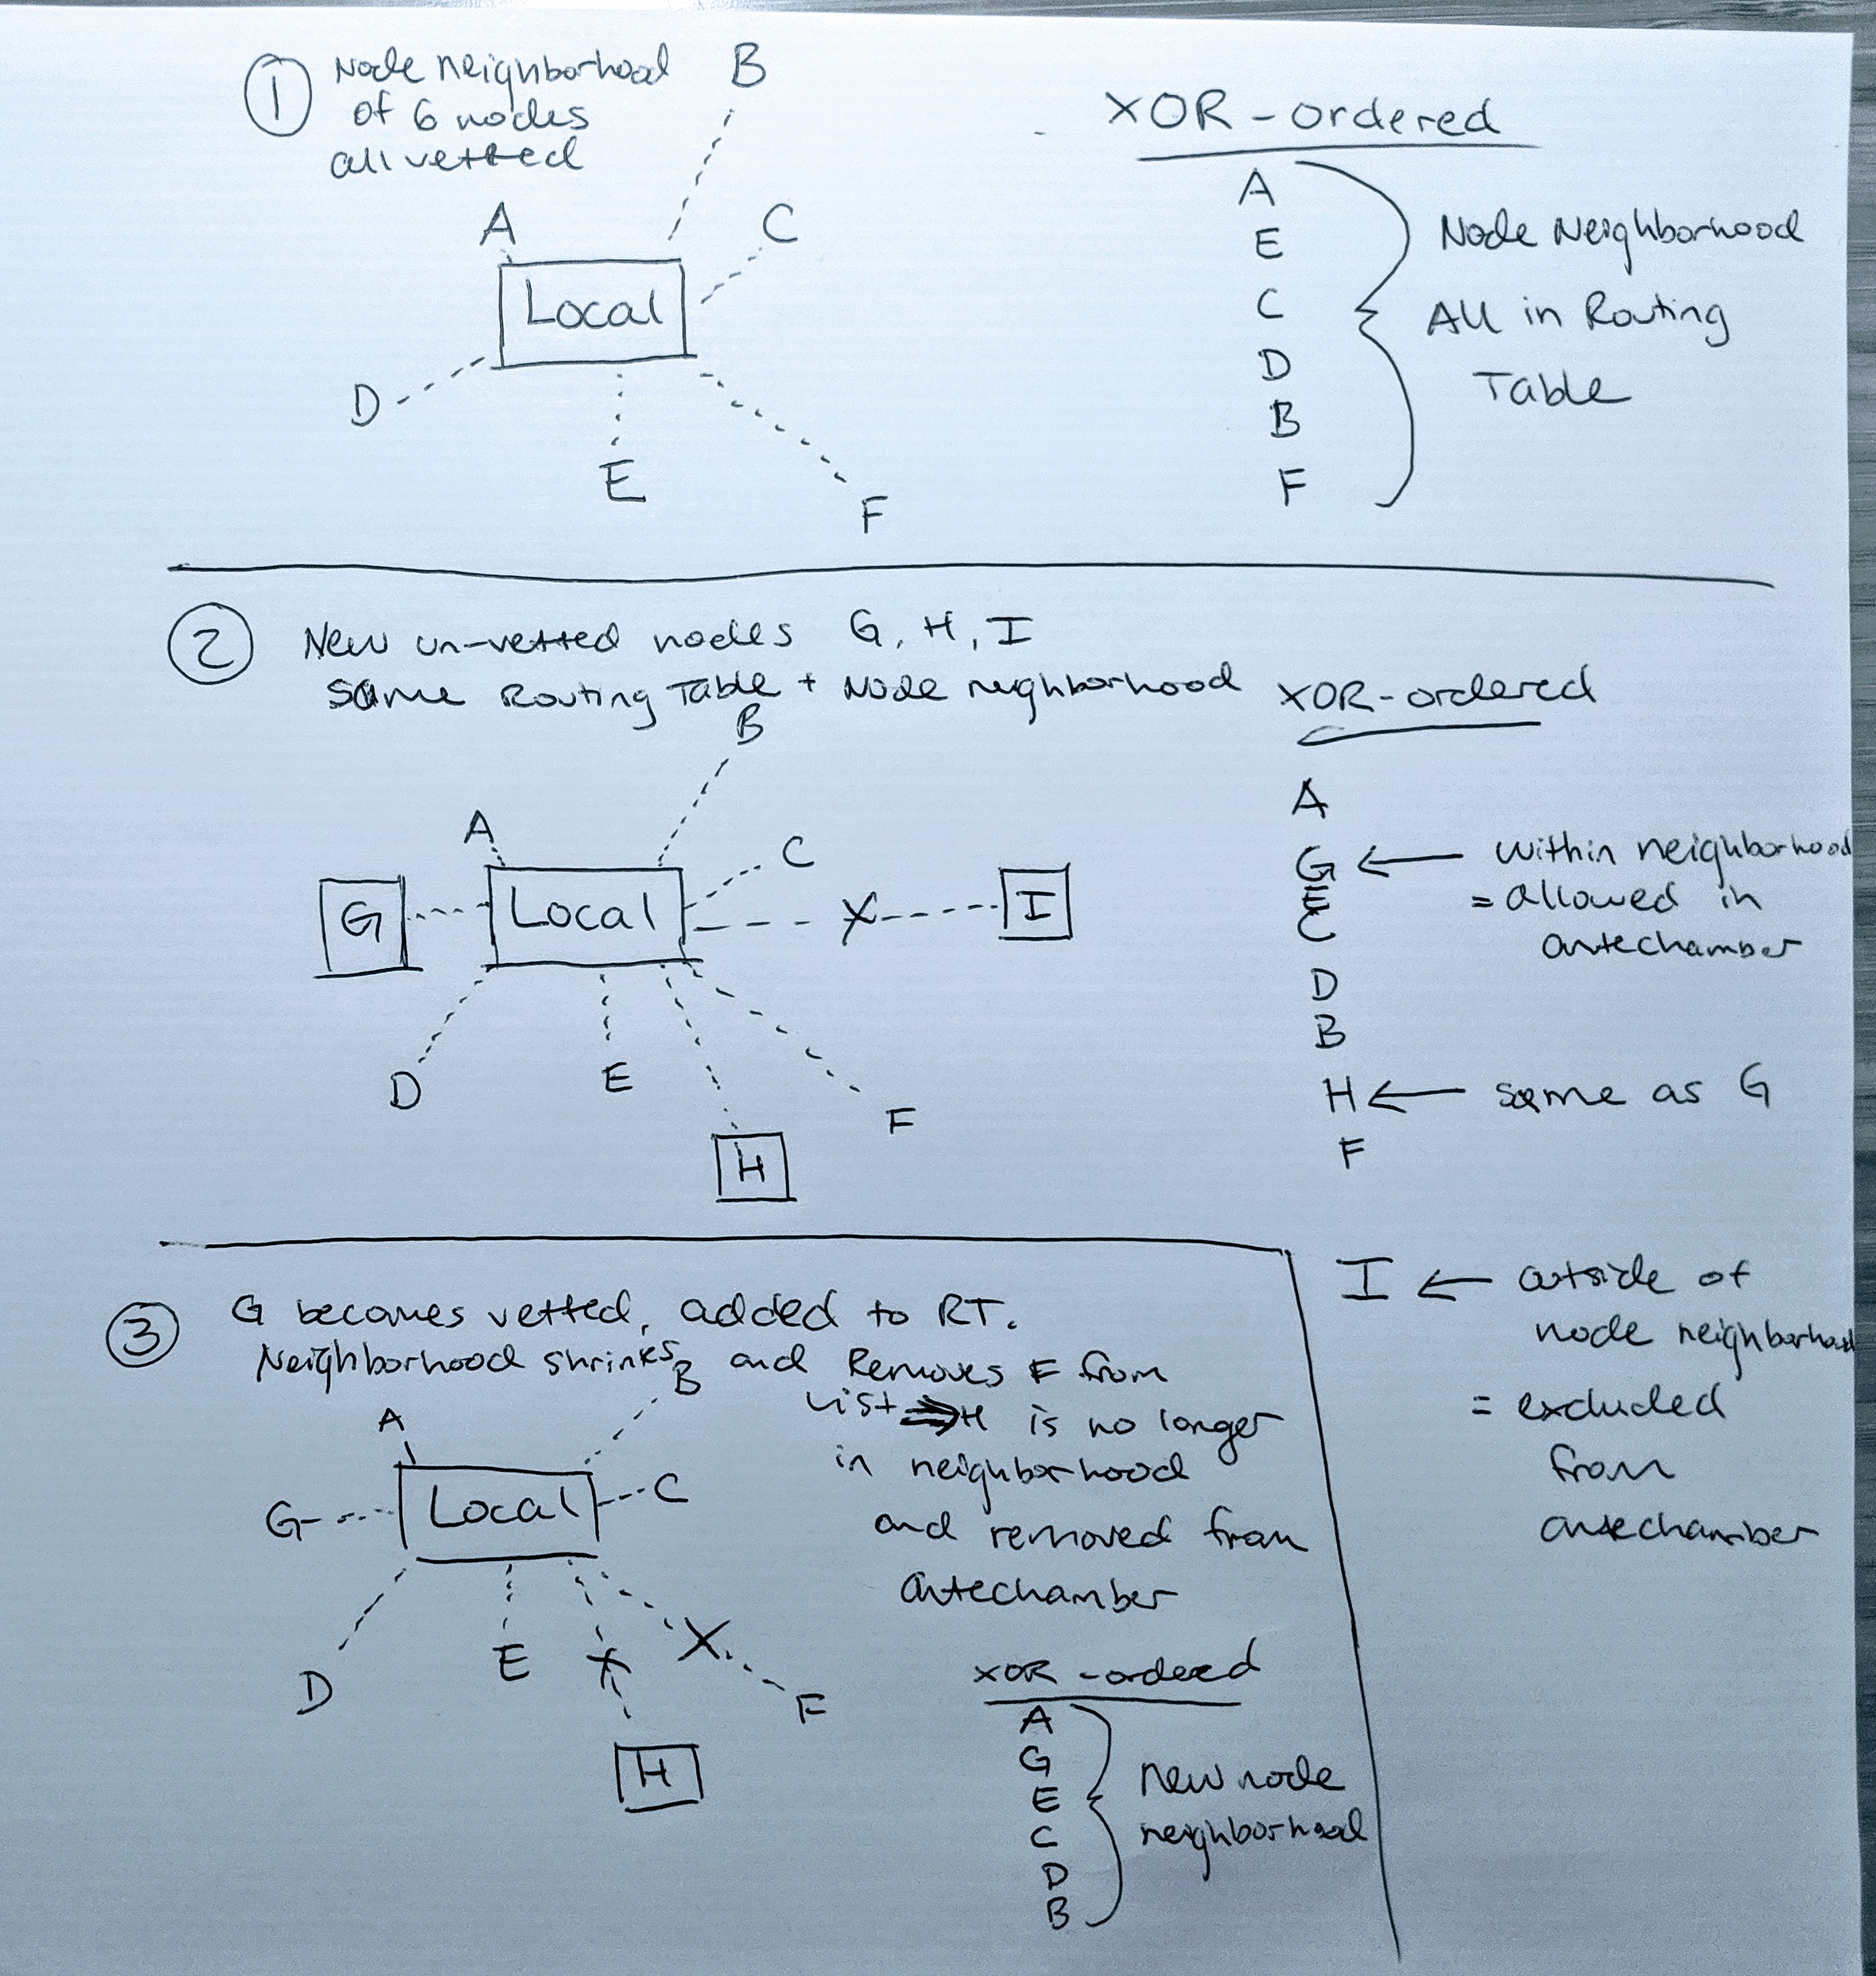 1 Node neighborhood
of 6 nodes
all vetted
B
A
C
Local
D
E
F
XOR-ordered
A
E
C
D
B
F
Node Neighborhood
All in Routing
Table
2 New un-vetted nodes G, H, I
Same Routing Table + Node neighborhood
B
A
C
G
Local
X
I
D
E
F
H
XOR-ordered
A
G ← within neighborhood
E = allowed in
C antechamber
D
B
H ← same as G
F
I ← outside of
node neighborhood
= excluded
from
antechamber
3 G becomes vetted, added to RT.
Neighborhood shrinks and Removes F from
List ⇒ H is no longer
in neighborhood
and removed from
antechamber
B
A
G
Local
C
D
E
X
X
F
H
XOR-ordered
A
G
E
C
D
B
new node
neighborhood